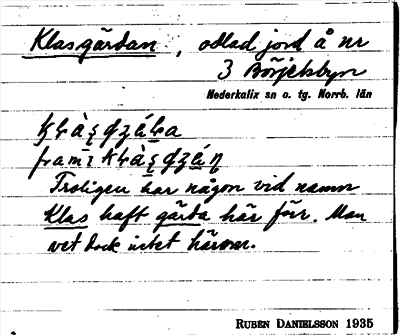 Klasgärdan, odlad jord å nr
3 Börjelsbyn
Nederkalix sn o. tg. Norrb. län
Troligen har någon vid namn
Klas haft gärda här förr. Man
vet dock intet härom.
RUBEN DANIELSSON 1935